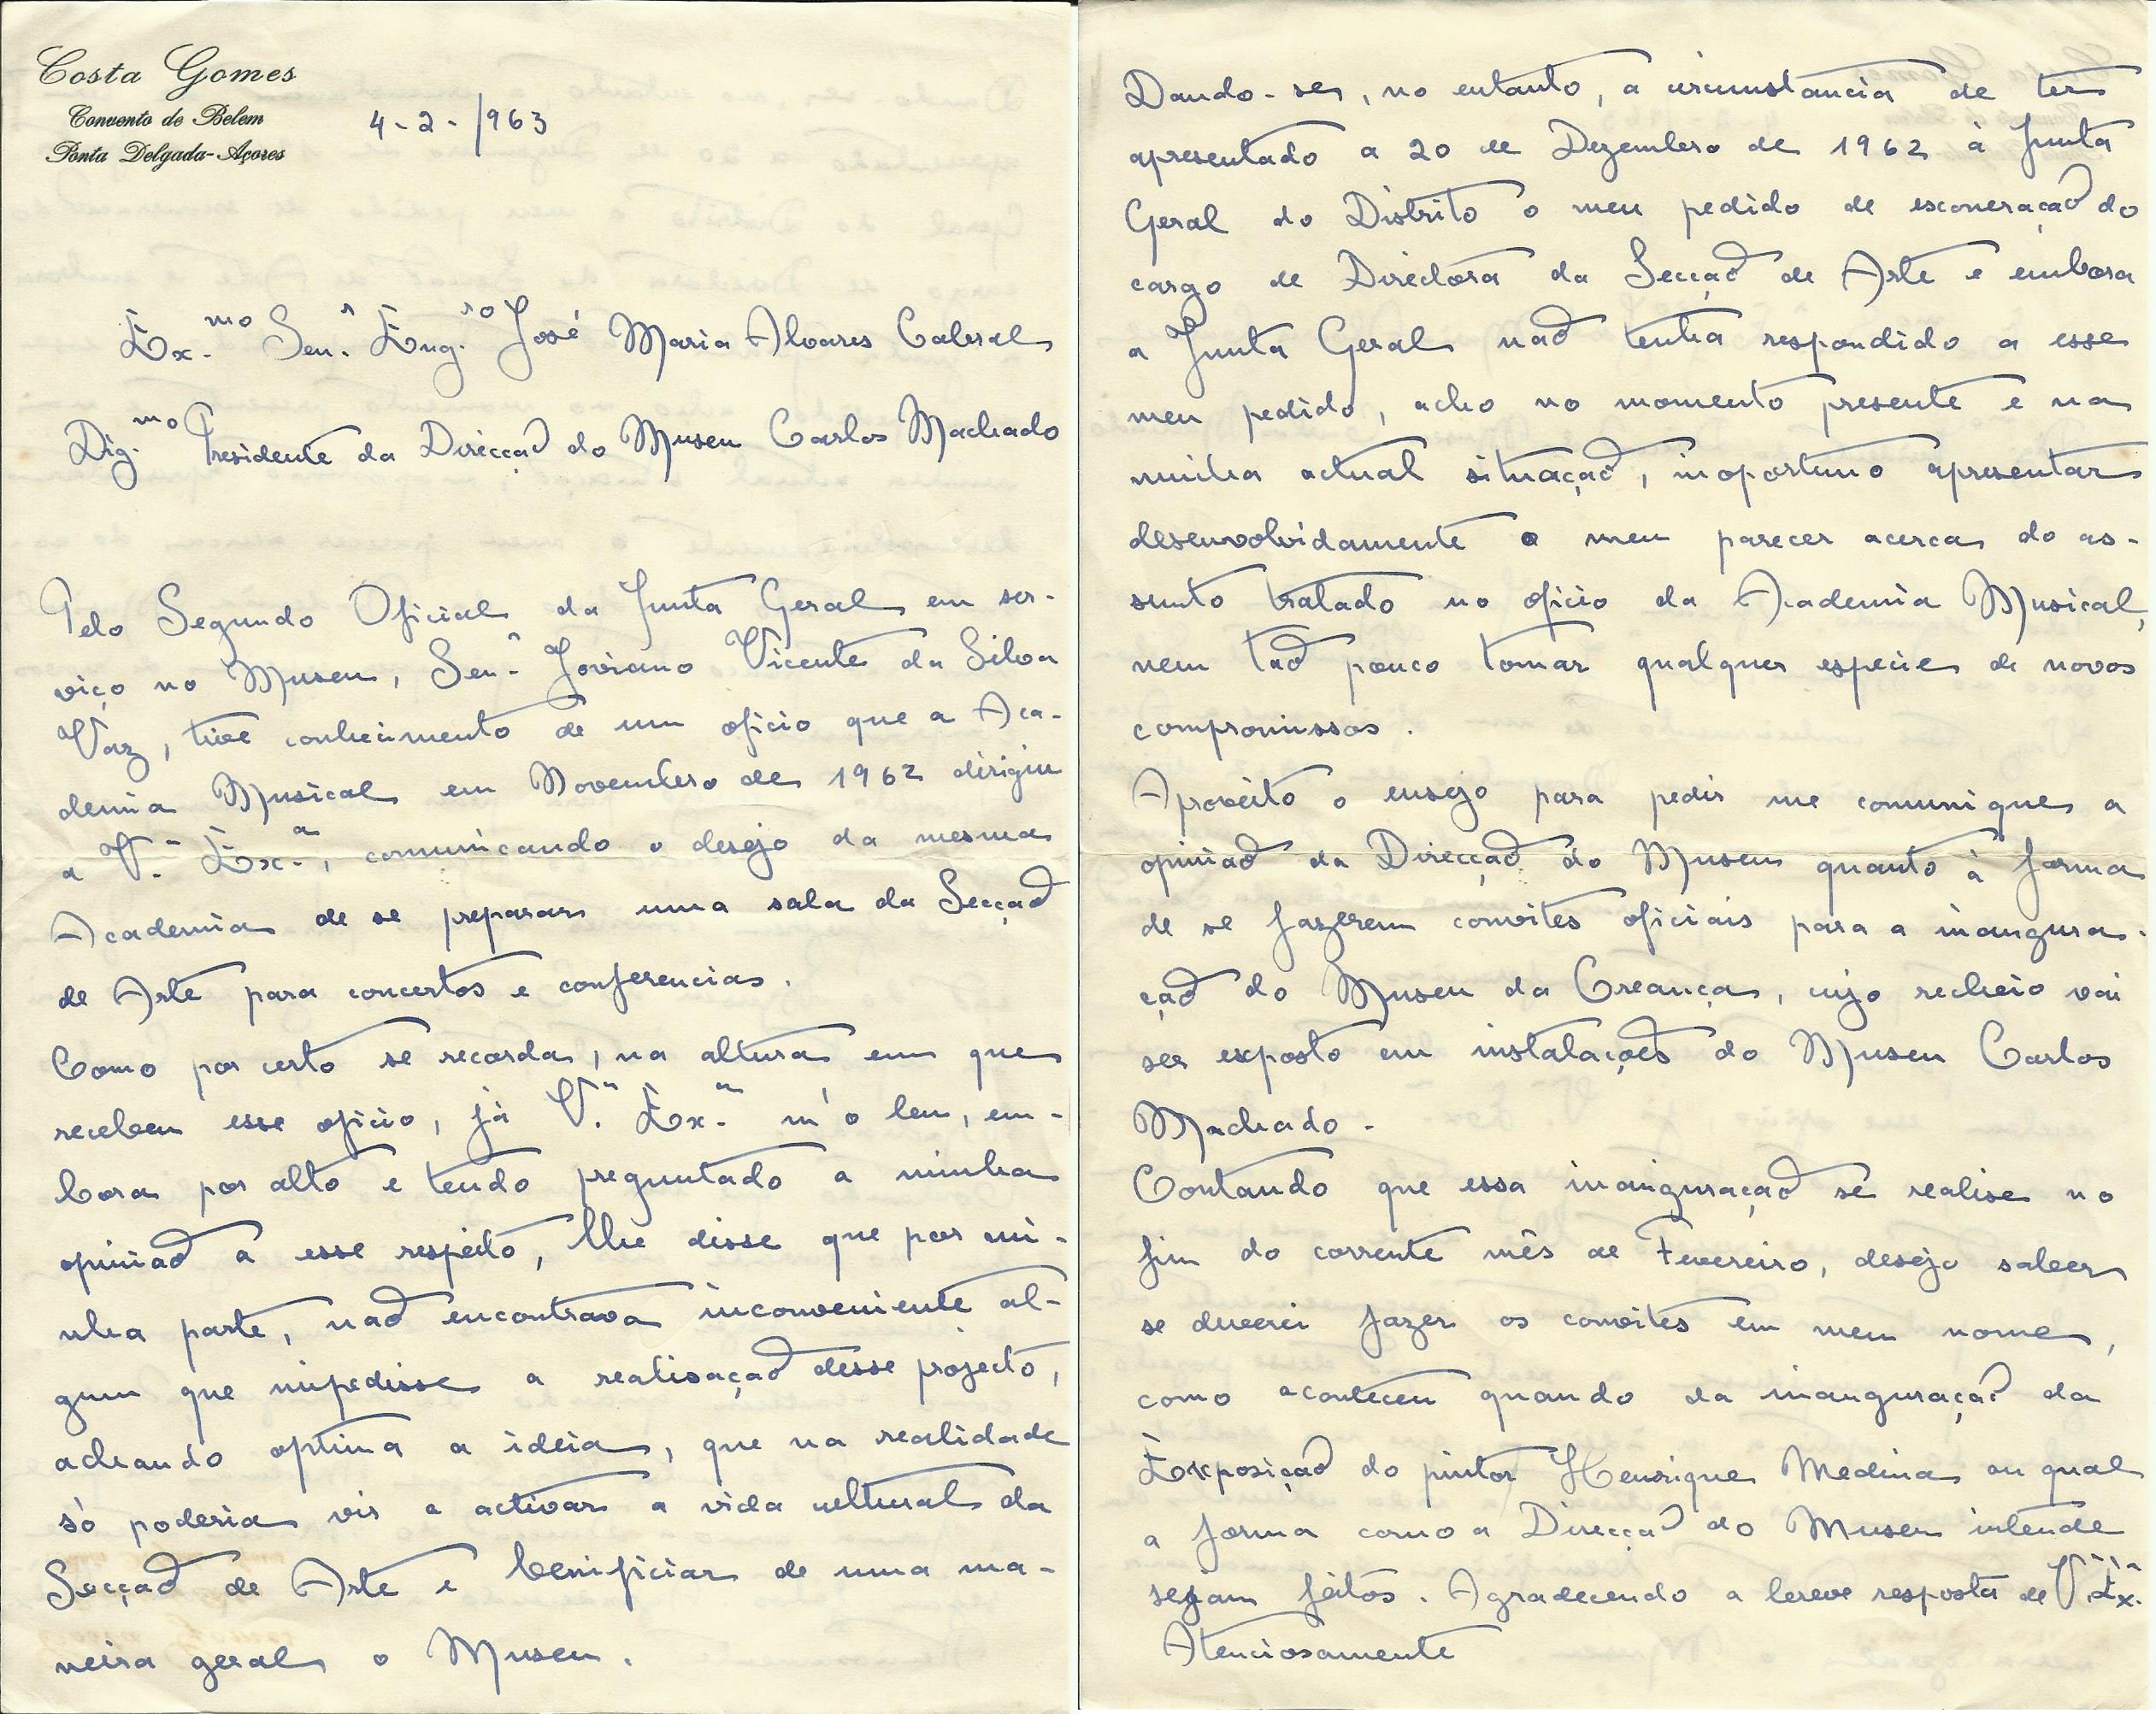 Costa Gomes
Convento de Belem
Ponta Delgada-Açores
4-2-/963
Ex.mo Sen.r Eng.ro José Maria Alvares Cabral
Dig.mo Presidente da Direcção do Museu Carlos Machado
Pelo Segundo Oficial da Junta Geral em ser-
viço no Museu, Sen.r Joviano Vicente da Silva
Vaz, tive conhecimento de um oficio que a Aca-
demia Musical em Novembro de 1962 dirigiu
a V.a Ex.a, comunicando o desejo da mesma
Academia de se preparar uma sala da Secção
de Arte para concertos e conferencias.
Como por certo se recorda, na altura em que
recebeu esse oficio, já V.a Ex.a m'o leu, em-
bora por alto e tendo preguntado a minha
opinião a esse respeito, lhe disse que por mi-
nha parte, não encontrava inconveniente al-
gum que impedisse a realisação desse projecto,
achando optima a ideia, que na realidade
só poderia vir a activar a vida cultural da
Secção de Arte e benificiar de uma ma-
neira geral o Museu.
Dando-se, no entanto, a circunstancia de ter
apresentado a 20 de Dezembro de 1962 à Junta
Geral do Distrito o meu pedido de esconeração do
cargo de Directora da Secção de Arte e embora
a Junta Geral não tenha respondido a esse
meu pedido, acho no momento presente e na
minha actual situação, inoportuno apresentar
desenvolvidamente o meu parecer acerca do as-
sunto tratado no oficio da Academia Musical,
nem tão pouco tomar qualquer especie de novos
compromissos.
Aproveito o ensejo para pedir me comunique a
opinião da Direcção do Museu quanto à forma
de se fazerem convites oficiais para a inaugura-
ção do Museu da Creança, cujo recheio vai
ser exposto em instalações do Museu Carlos
Machado.
Contando que essa inauguração se realise no
fim do corrente mês de Fevereiro, desejo saber
se deverei fazer os convites em meu nome,
como aconteceu quando da inauguração da
Exposição do pintor Henrique Medina ou qual
a forma como a Direcção do Museu intende
sejam feitos. Agradecendo a breve resposta de V.a Ex.a
Atenciosamente